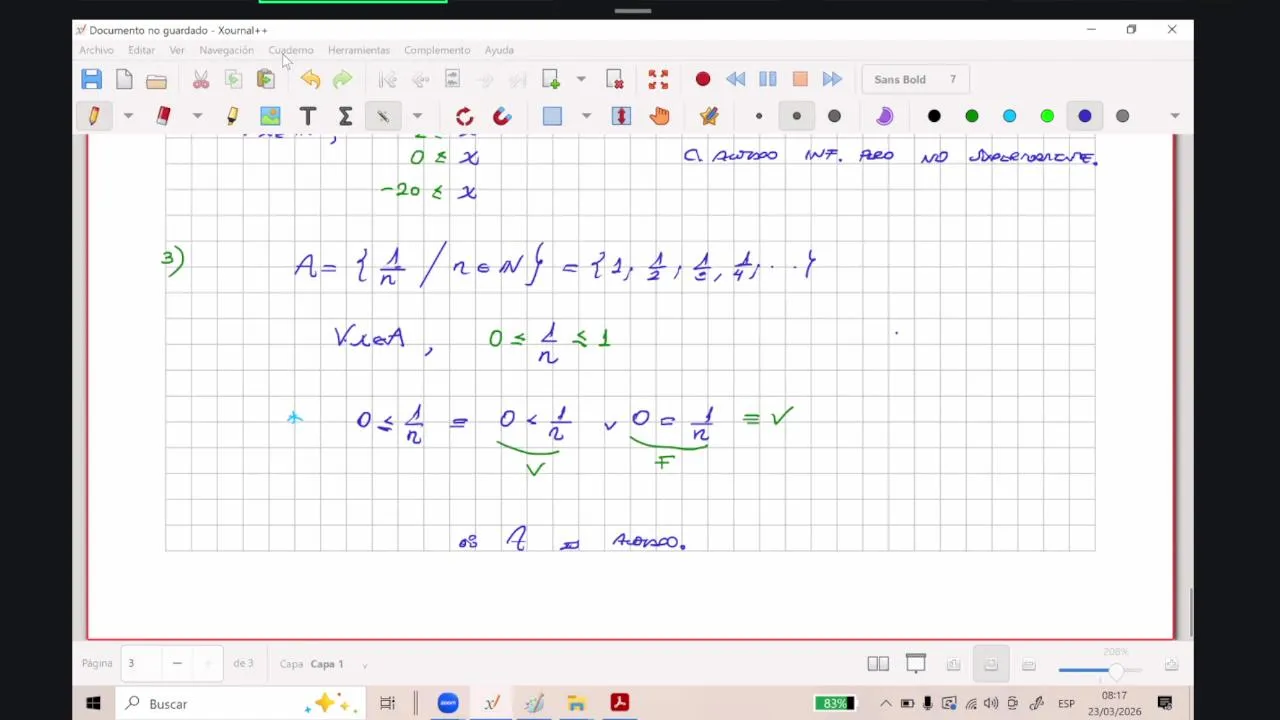 Documento no guardado - Xournal++
Archivo Editar Ver Navegación Cuaderno Herramientas Complemento Ayuda
Sans Bold 7
0 ≤ x
-20 ≤ x
INF. PERO NO SUPERIORMENTE.
3) A = { 1/n / n ∈ N } = { 1, 1/2, 1/3, 1/4, ... }
∀x∈A, 0 ≤ 1/n ≤ 1
* 0 ≤ 1/n ≡ 0 < 1/n ∨ 0 = 1/n ≡ V
V F
∴ A es ACOTADO.
Página 3 de 3 Capa Capa 1 208%
Buscar 83% ESP 08:17
23/03/2026